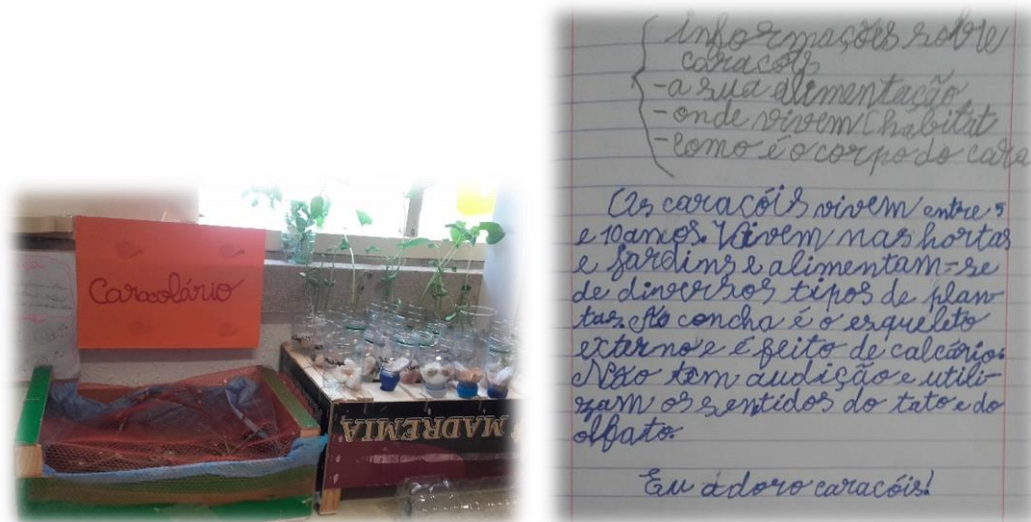 Caracolário
MADREMIA
informações sobre
caracóis
-a sua alimentação
-onde vivem (habitat
-como é o corpo do cara
Os caracóis vivem entre 5
e 10 anos. Vivem nas hortas
e jardins e alimentam-se
de diversos tipos de plan
tas. A concha é o esqueleto
externo e é feito de calcário.
Não têm audição e utili-
zam os sentidos do tato e do
olfato.
Eu adoro caracóis!